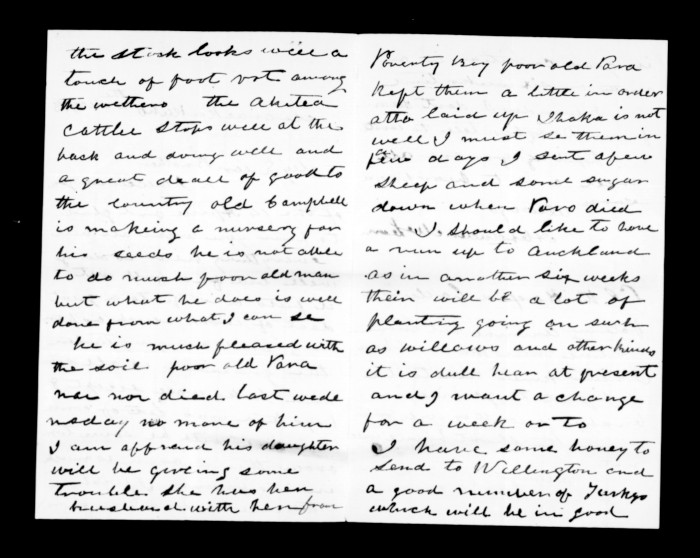 the stock looks well a
touch of foot rot among
the wethers the Akitea
Cattle stops well at the
back and doing well and
a great deall of good to
the country old Campbell
is makeing a nursery for
his seeds he is not able
to do much poor old man
but what he does is well
done from what I can se
he is much pleased with
the soil poor old Para
died last wede
nsday no more of him
I am affraid his daughter
will be giveing some
trouble she has her
husband with her from
Poverty Bay poor old Para
kept them a little in order
atta laid up Ihaka is not
well I must se them in
a few days I sent a few
sheep and some sugar
down when Paro died
I should like to have
a run up to Auckland
as in another six weeks
their will be a lot of
planting going on such
as willows and other kinds
it is dull hear at present
and I want a change
for a week or to
I have some honey to
send to Wellington and
a good number of Turkys
which will be in good